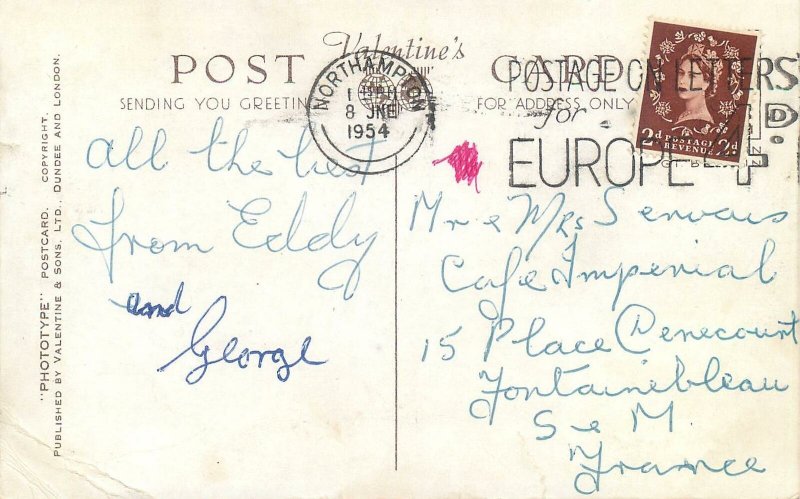 POST Valentine's CARD
SENDING YOU GREETIN
FOR ADDRESS ONLY
NORTHAMPTON
8 JNE
1954
POSTAGE ON LETTERS
for
EUROPE 4D.
2d POSTAGE 2d
REVENUE
All the best
from Eddy
and
George
Mr e Mrs Servais
Cafe Imperial
15 Place Denecourt
Fontainebleau
S e M.
France
"PHOTOTYPE" POSTCARD. COPYRIGHT.
PUBLISHED BY VALENTINE & SONS, LTD., DUNDEE AND LONDON.